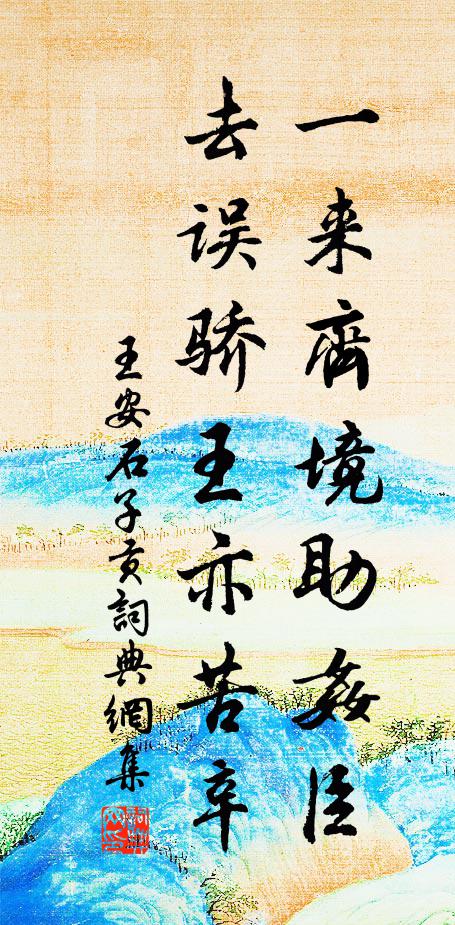 一来齊境助姦臣
去误骄王亦苦辛
王安石子貢詞典網集